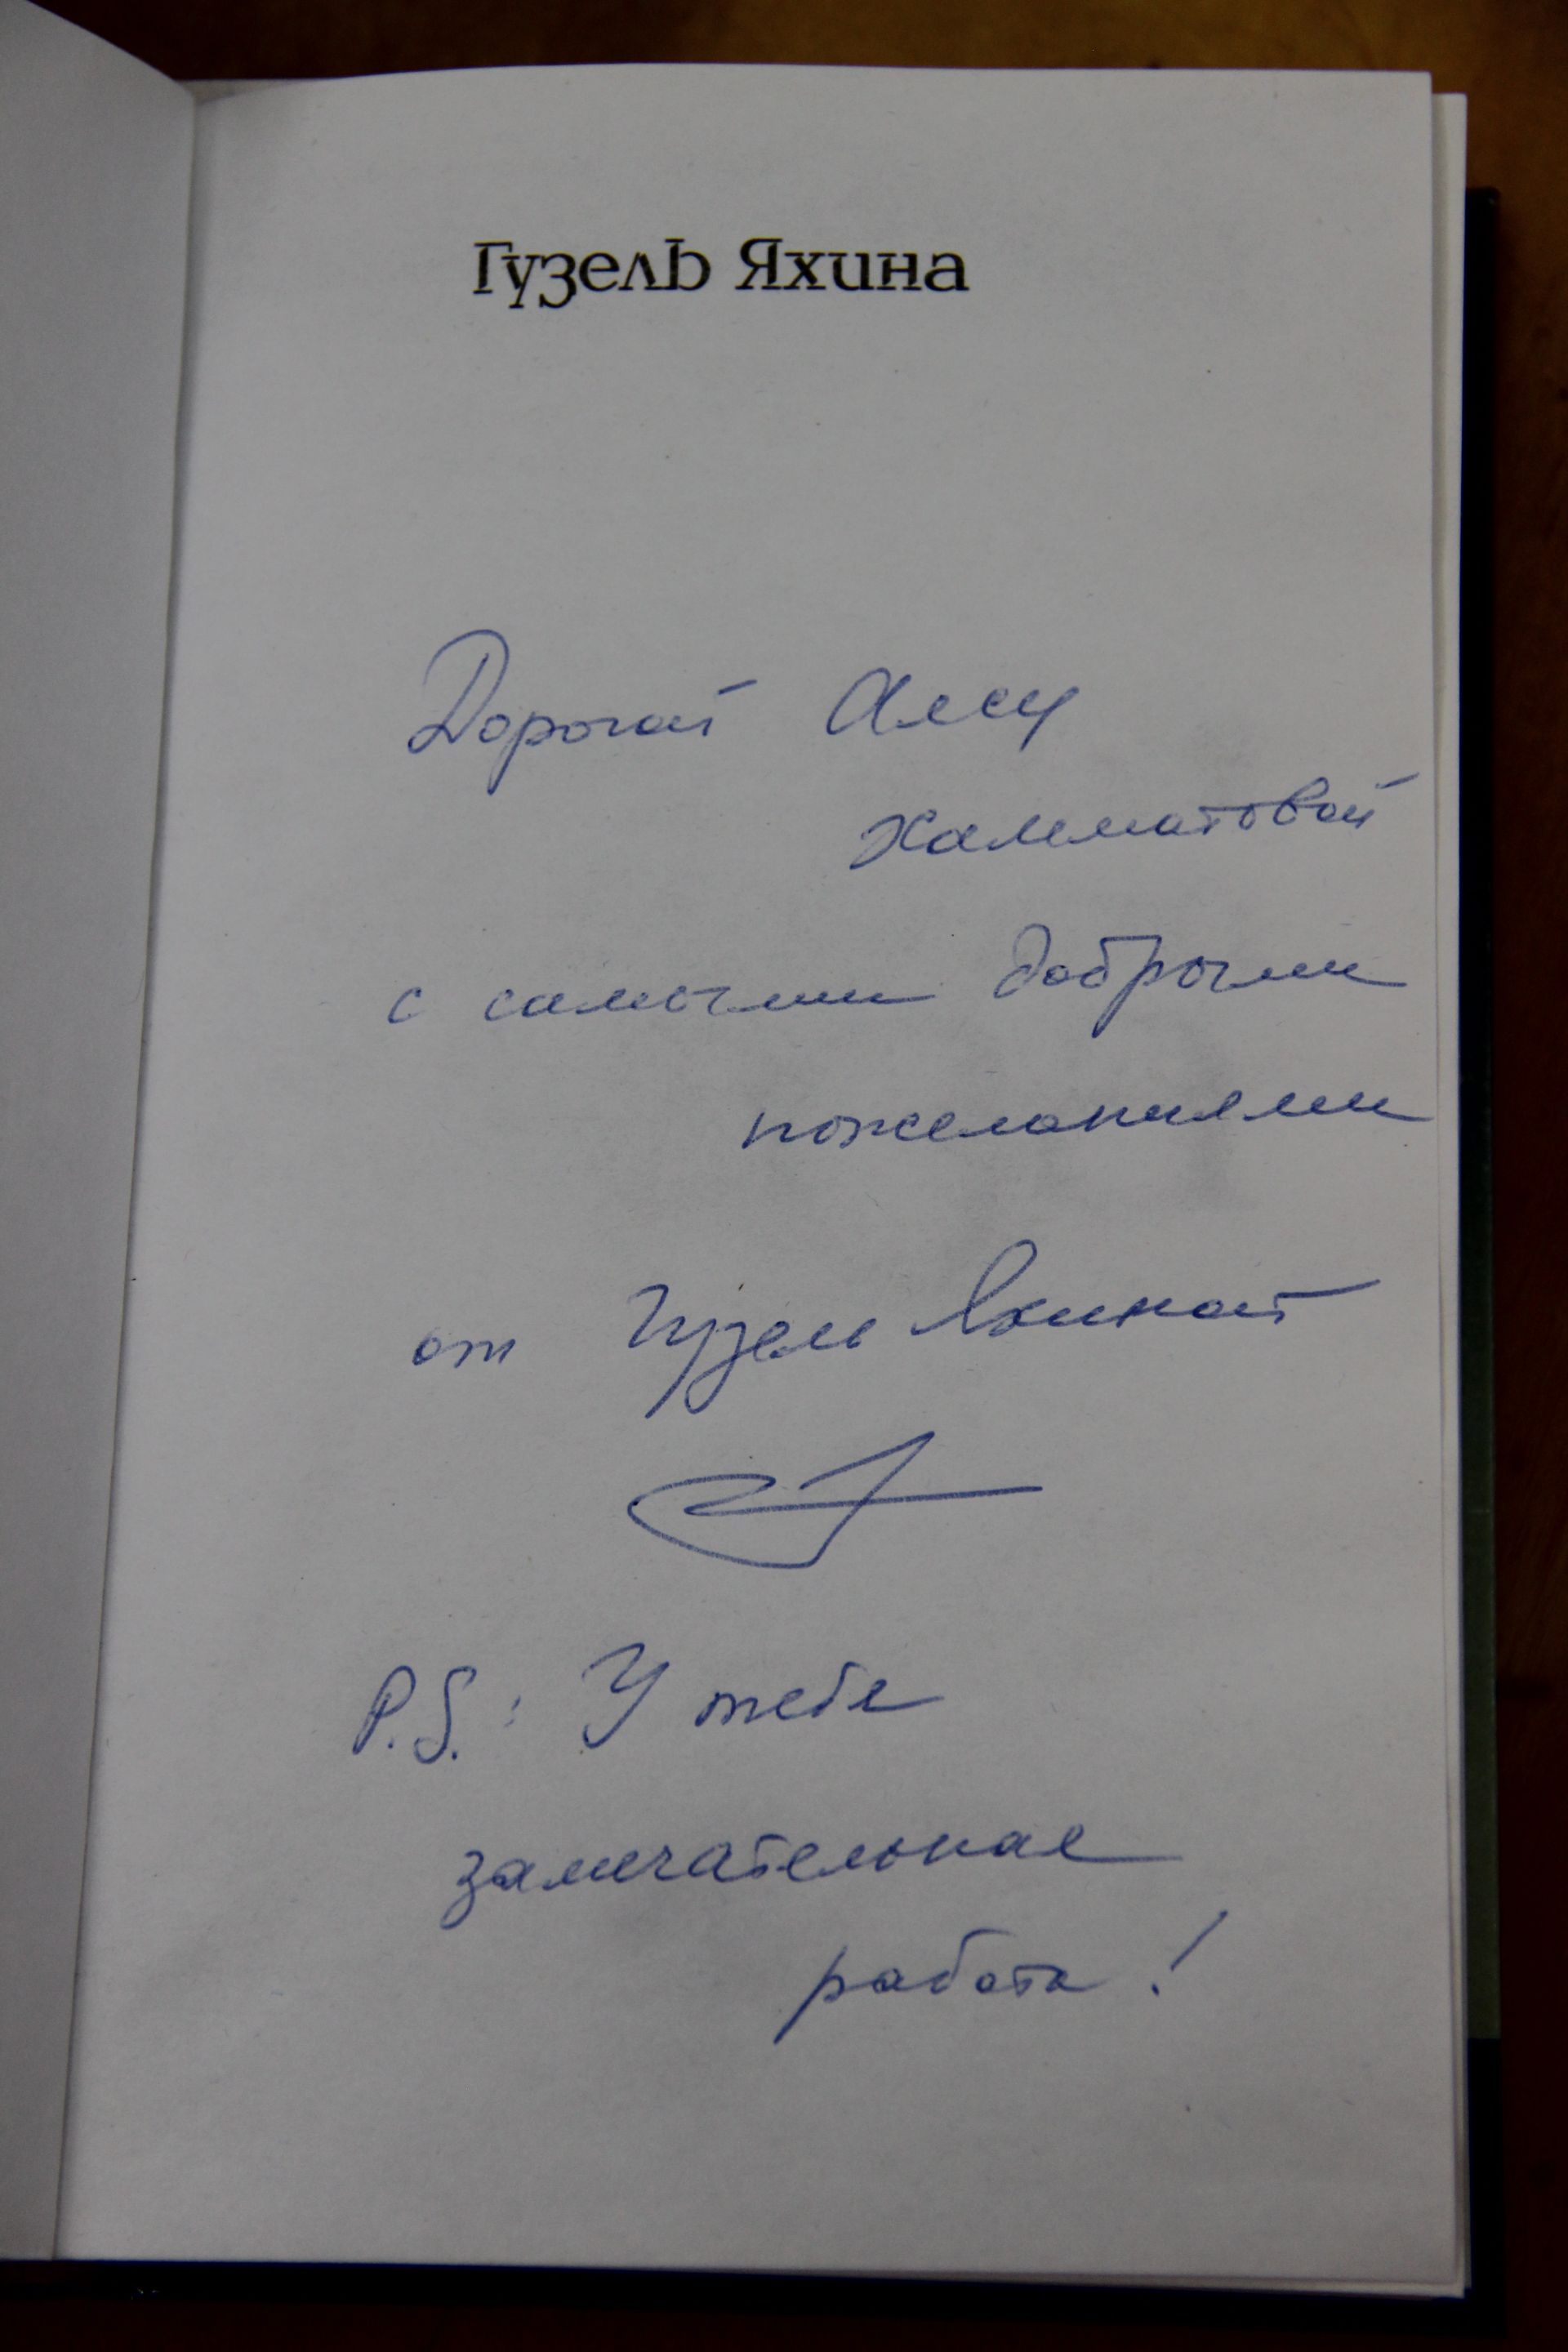 Гузель Яхина
Дорогой Алсу
Хамматовой
с самыми добрыми
пожеланиями
от Гузель Яхиной
P.S.: У тебя
замечательная
работа!